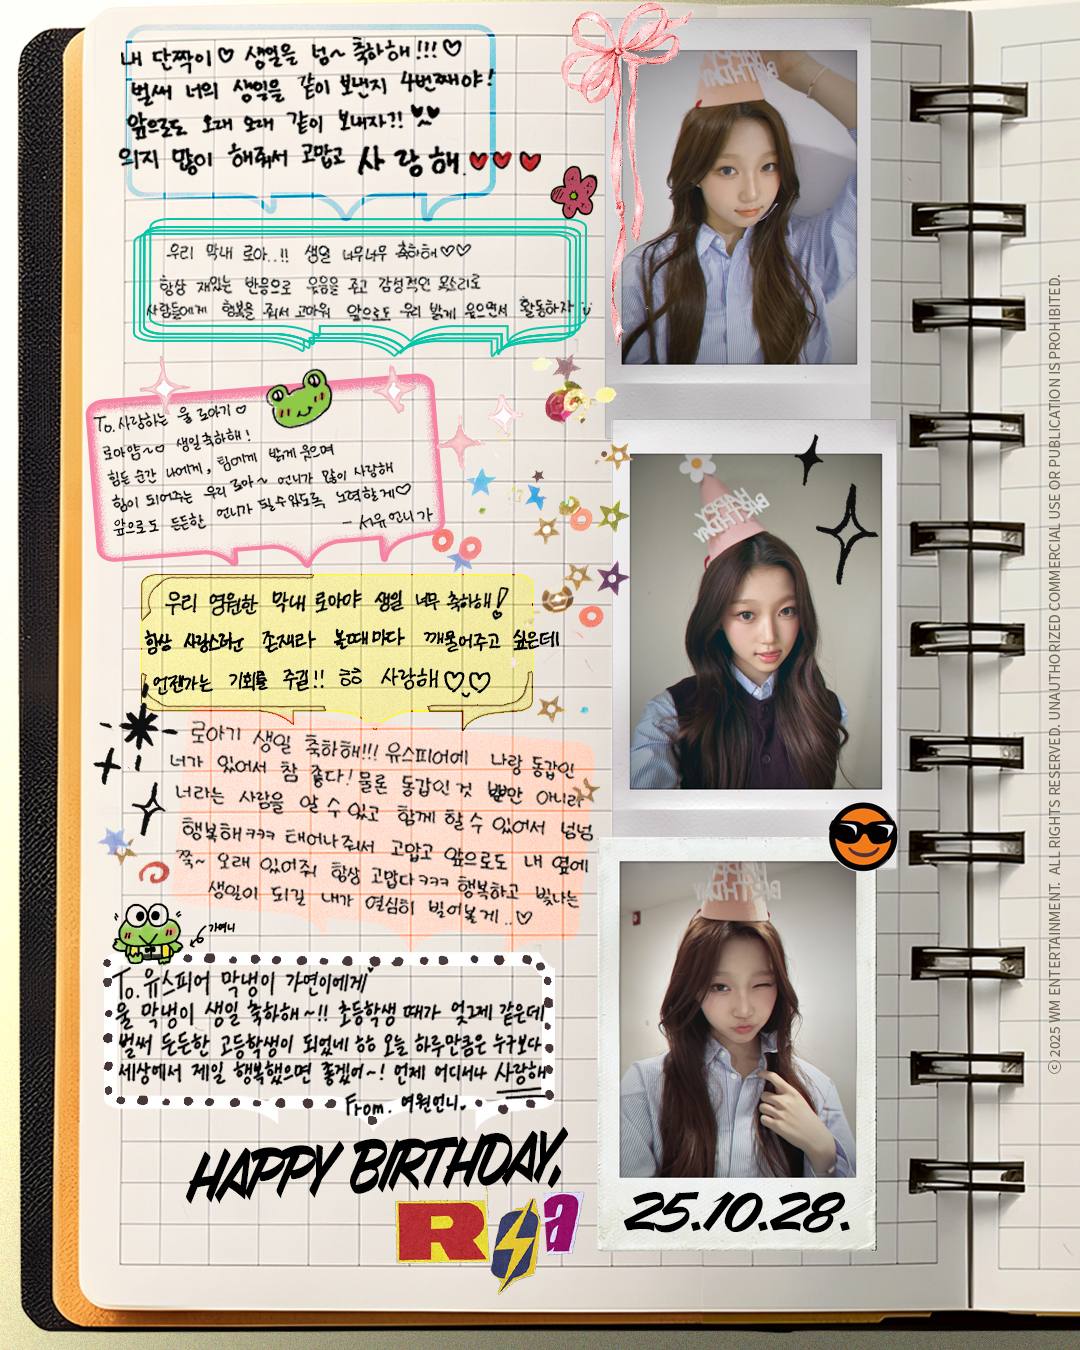 내 단짝이♡ 생일을 넘~ 축하해!!!♡
벌써 너의 생일을 같이 보낸지 4번째야!
앞으로도 오래 오래 같이 보내자?!
의지 많이 해줘서 고맙고 사랑해♥♥♥
우리 막내 로아..!! 생일 너무너무 축하해♡♡
항상 재밌는 반응으로 웃음을 주고 감성적인 목소리로
사람들에게 행복을 줘서 고마워 앞으로도 우리 밝게 웃으면서 활동하자
To. 사랑하는 울 로아기♡
로아얌~♡ 생일축하해!
힘든 순간 나에게, 팀에게 밝게 웃으며
힘이 되어주는 우리 로아~ 언니가 많이 사랑해
앞으로도 든든한 언니가 될수있도록 노력할게♡
- 서유언니가
우리 영원한 막내 로아야 생일 너무 축하해!
항상 사랑스러운 존재라 볼때마다 깨물어주고 싶은데
언젠가는 기회를 주길!! ㅎㅎ 사랑해♡♡
로아기 생일 축하해!!! 유스피어에 나랑 동갑인
너가 있어서 참 좋다! 물론 동갑인 것 뿐만 아니라
너라는 사람을 알 수 있고 함께 할 수 있어서 넘넘
행복해ㅋㅋㅋ 태어나줘서 고맙고 앞으로도 내 옆에
쭉~ 오래 있어줘 항상 고맙다ㅋㅋㅋ 행복하고 빛나는
생일이 되길 내가 열심히 빌어볼게..♡
가여니
To. 유스피어 막냉이 가연이에게
울 막냉이 생일 축하해~!! 초등학생 때가 엊그제 같은데
벌써 든든한 고등학생이 되었네 ㅎㅎ 오늘 하루만큼은 누구보다
세상에서 제일 행복했으면 좋겠어~! 언제 어디서나 사랑해
From. 여원언니
HAPPY BIRTHDAY,
ROA
HAPPY BIRTHDAY
HAPPY BIRTHDAY
HAPPY BIRTHDAY
25.10.28.
ⓒ 2025 WM ENTERTAINMENT. ALL RIGHTS RESERVED. UNAUTHORIZED COMMERCIAL USE OR PUBLICATION IS PROHIBITED.